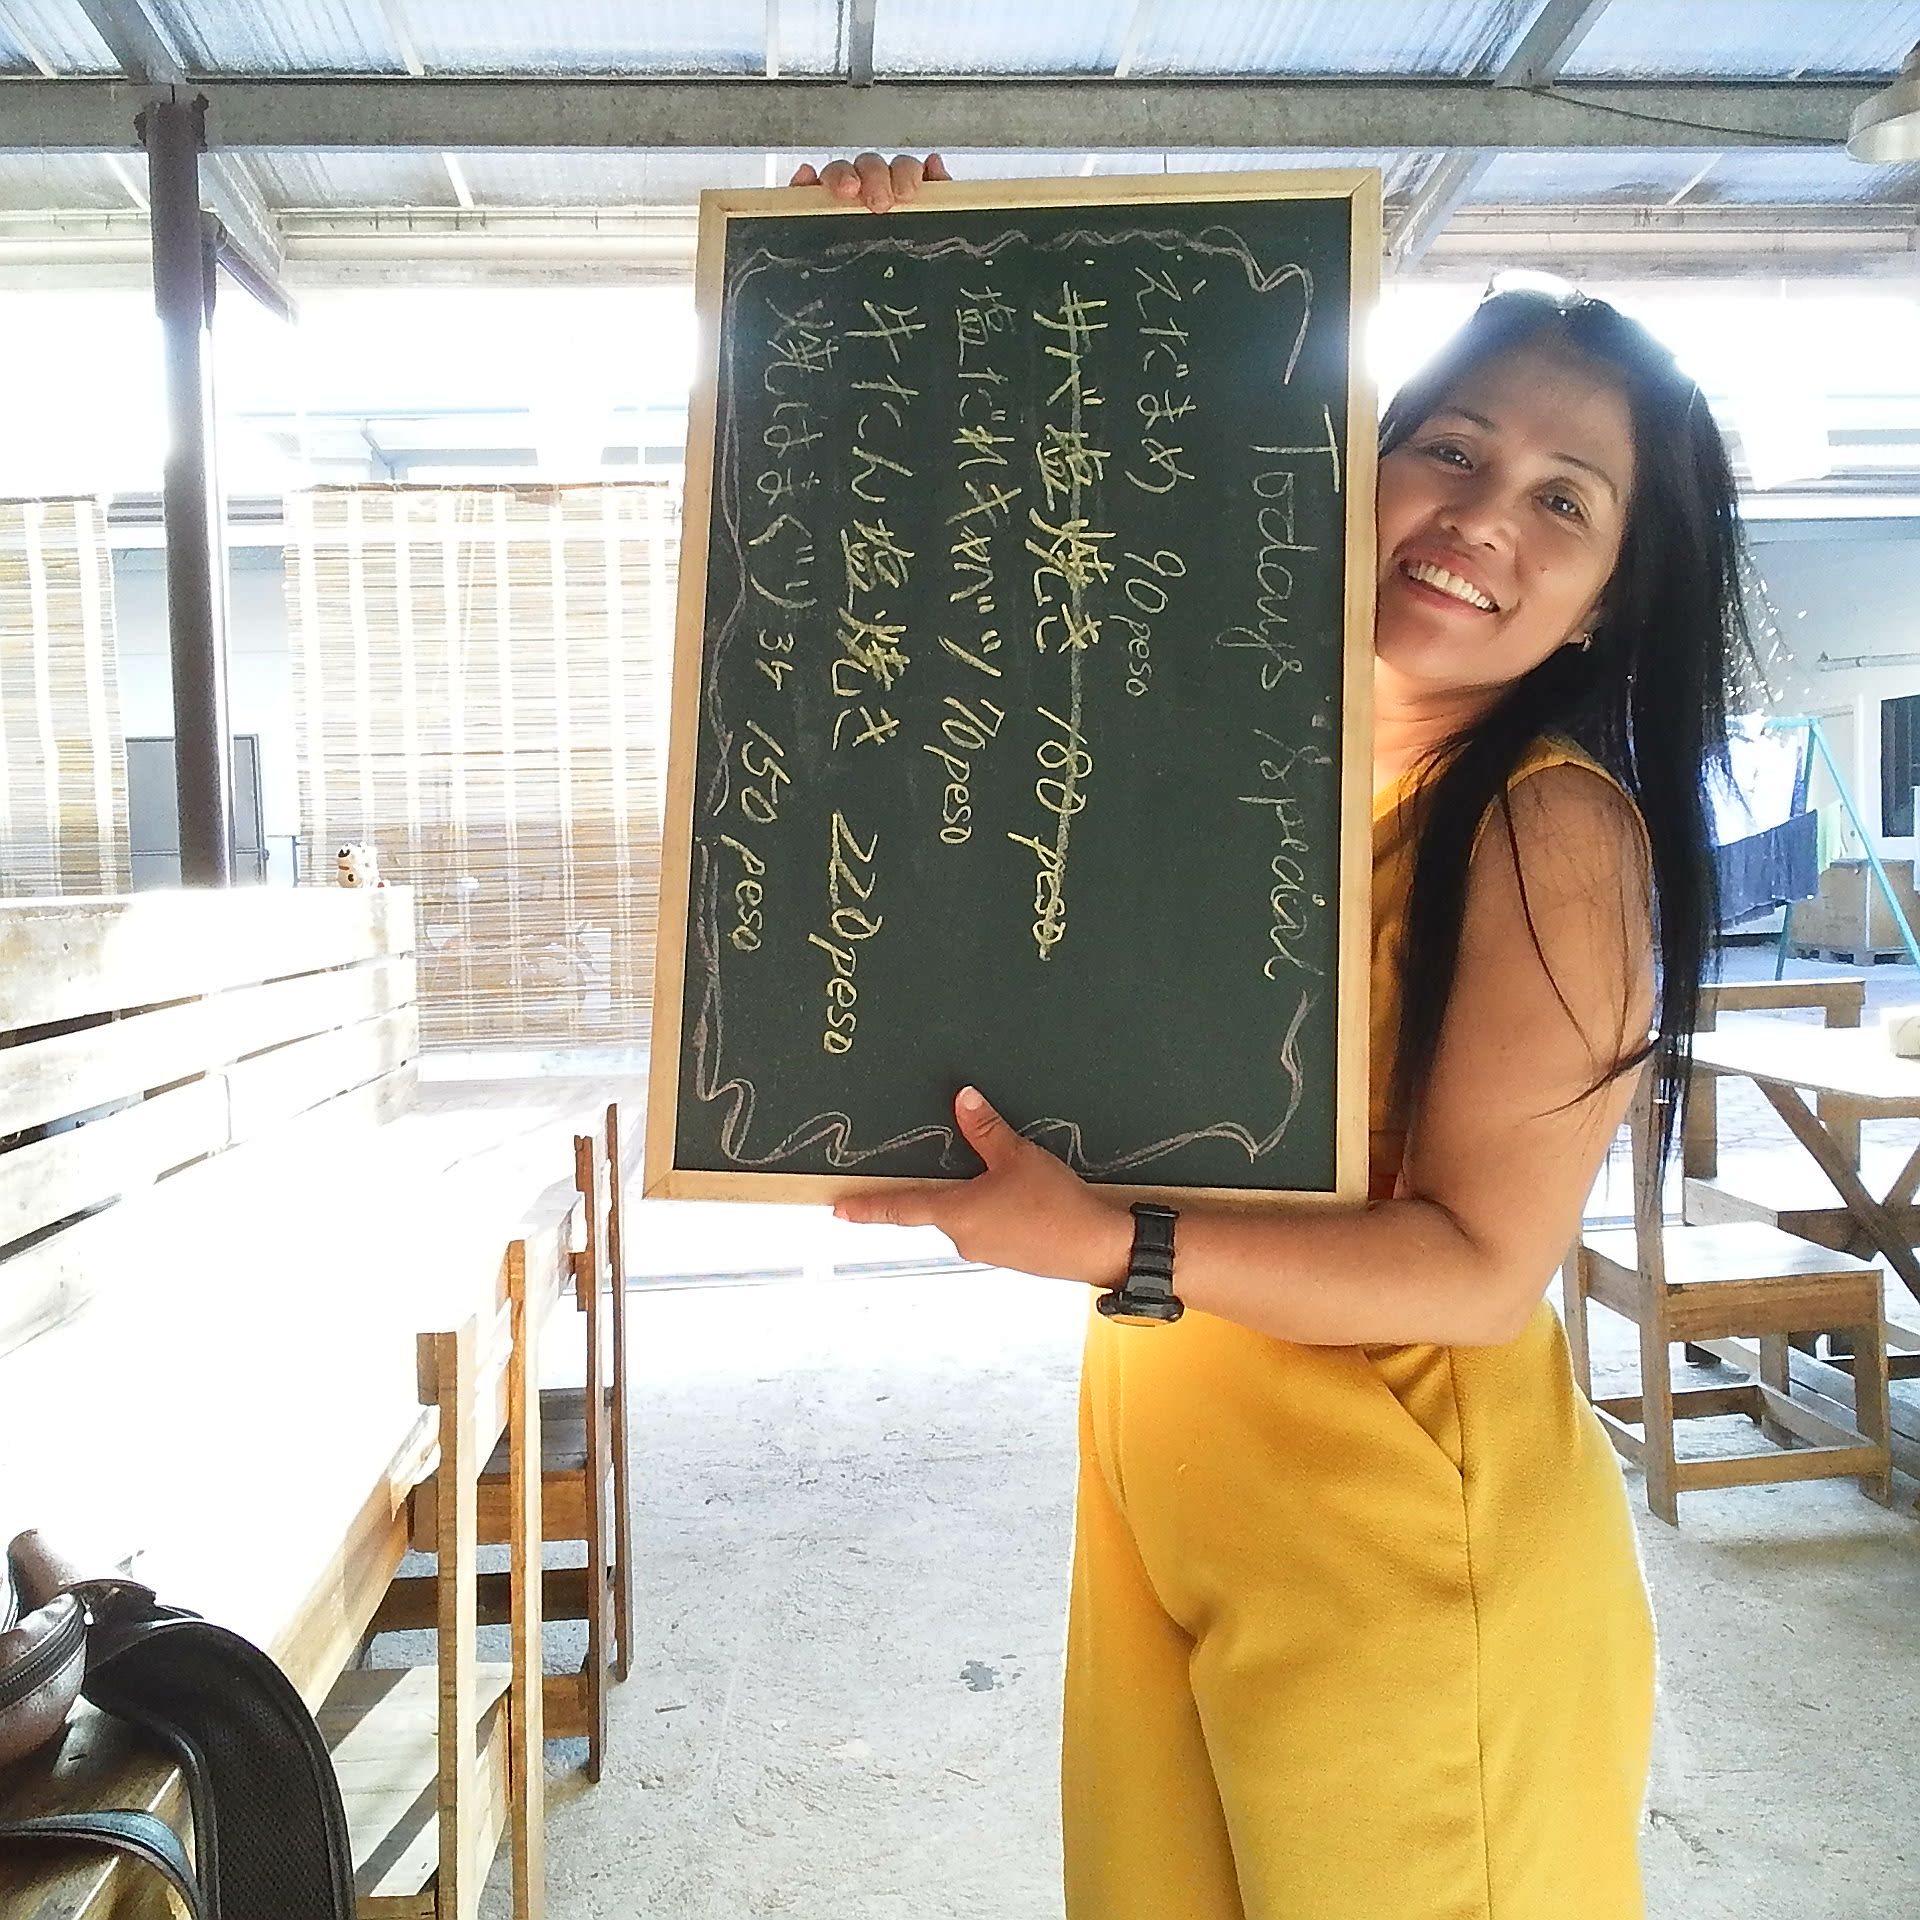 Today's Special
・えだまめ 90peso
・サバ塩焼き 180 peso
・塩だれキャベツ 70peso
・牛たん塩焼き 220peso
・焼はまぐり 3ケ 150 peso